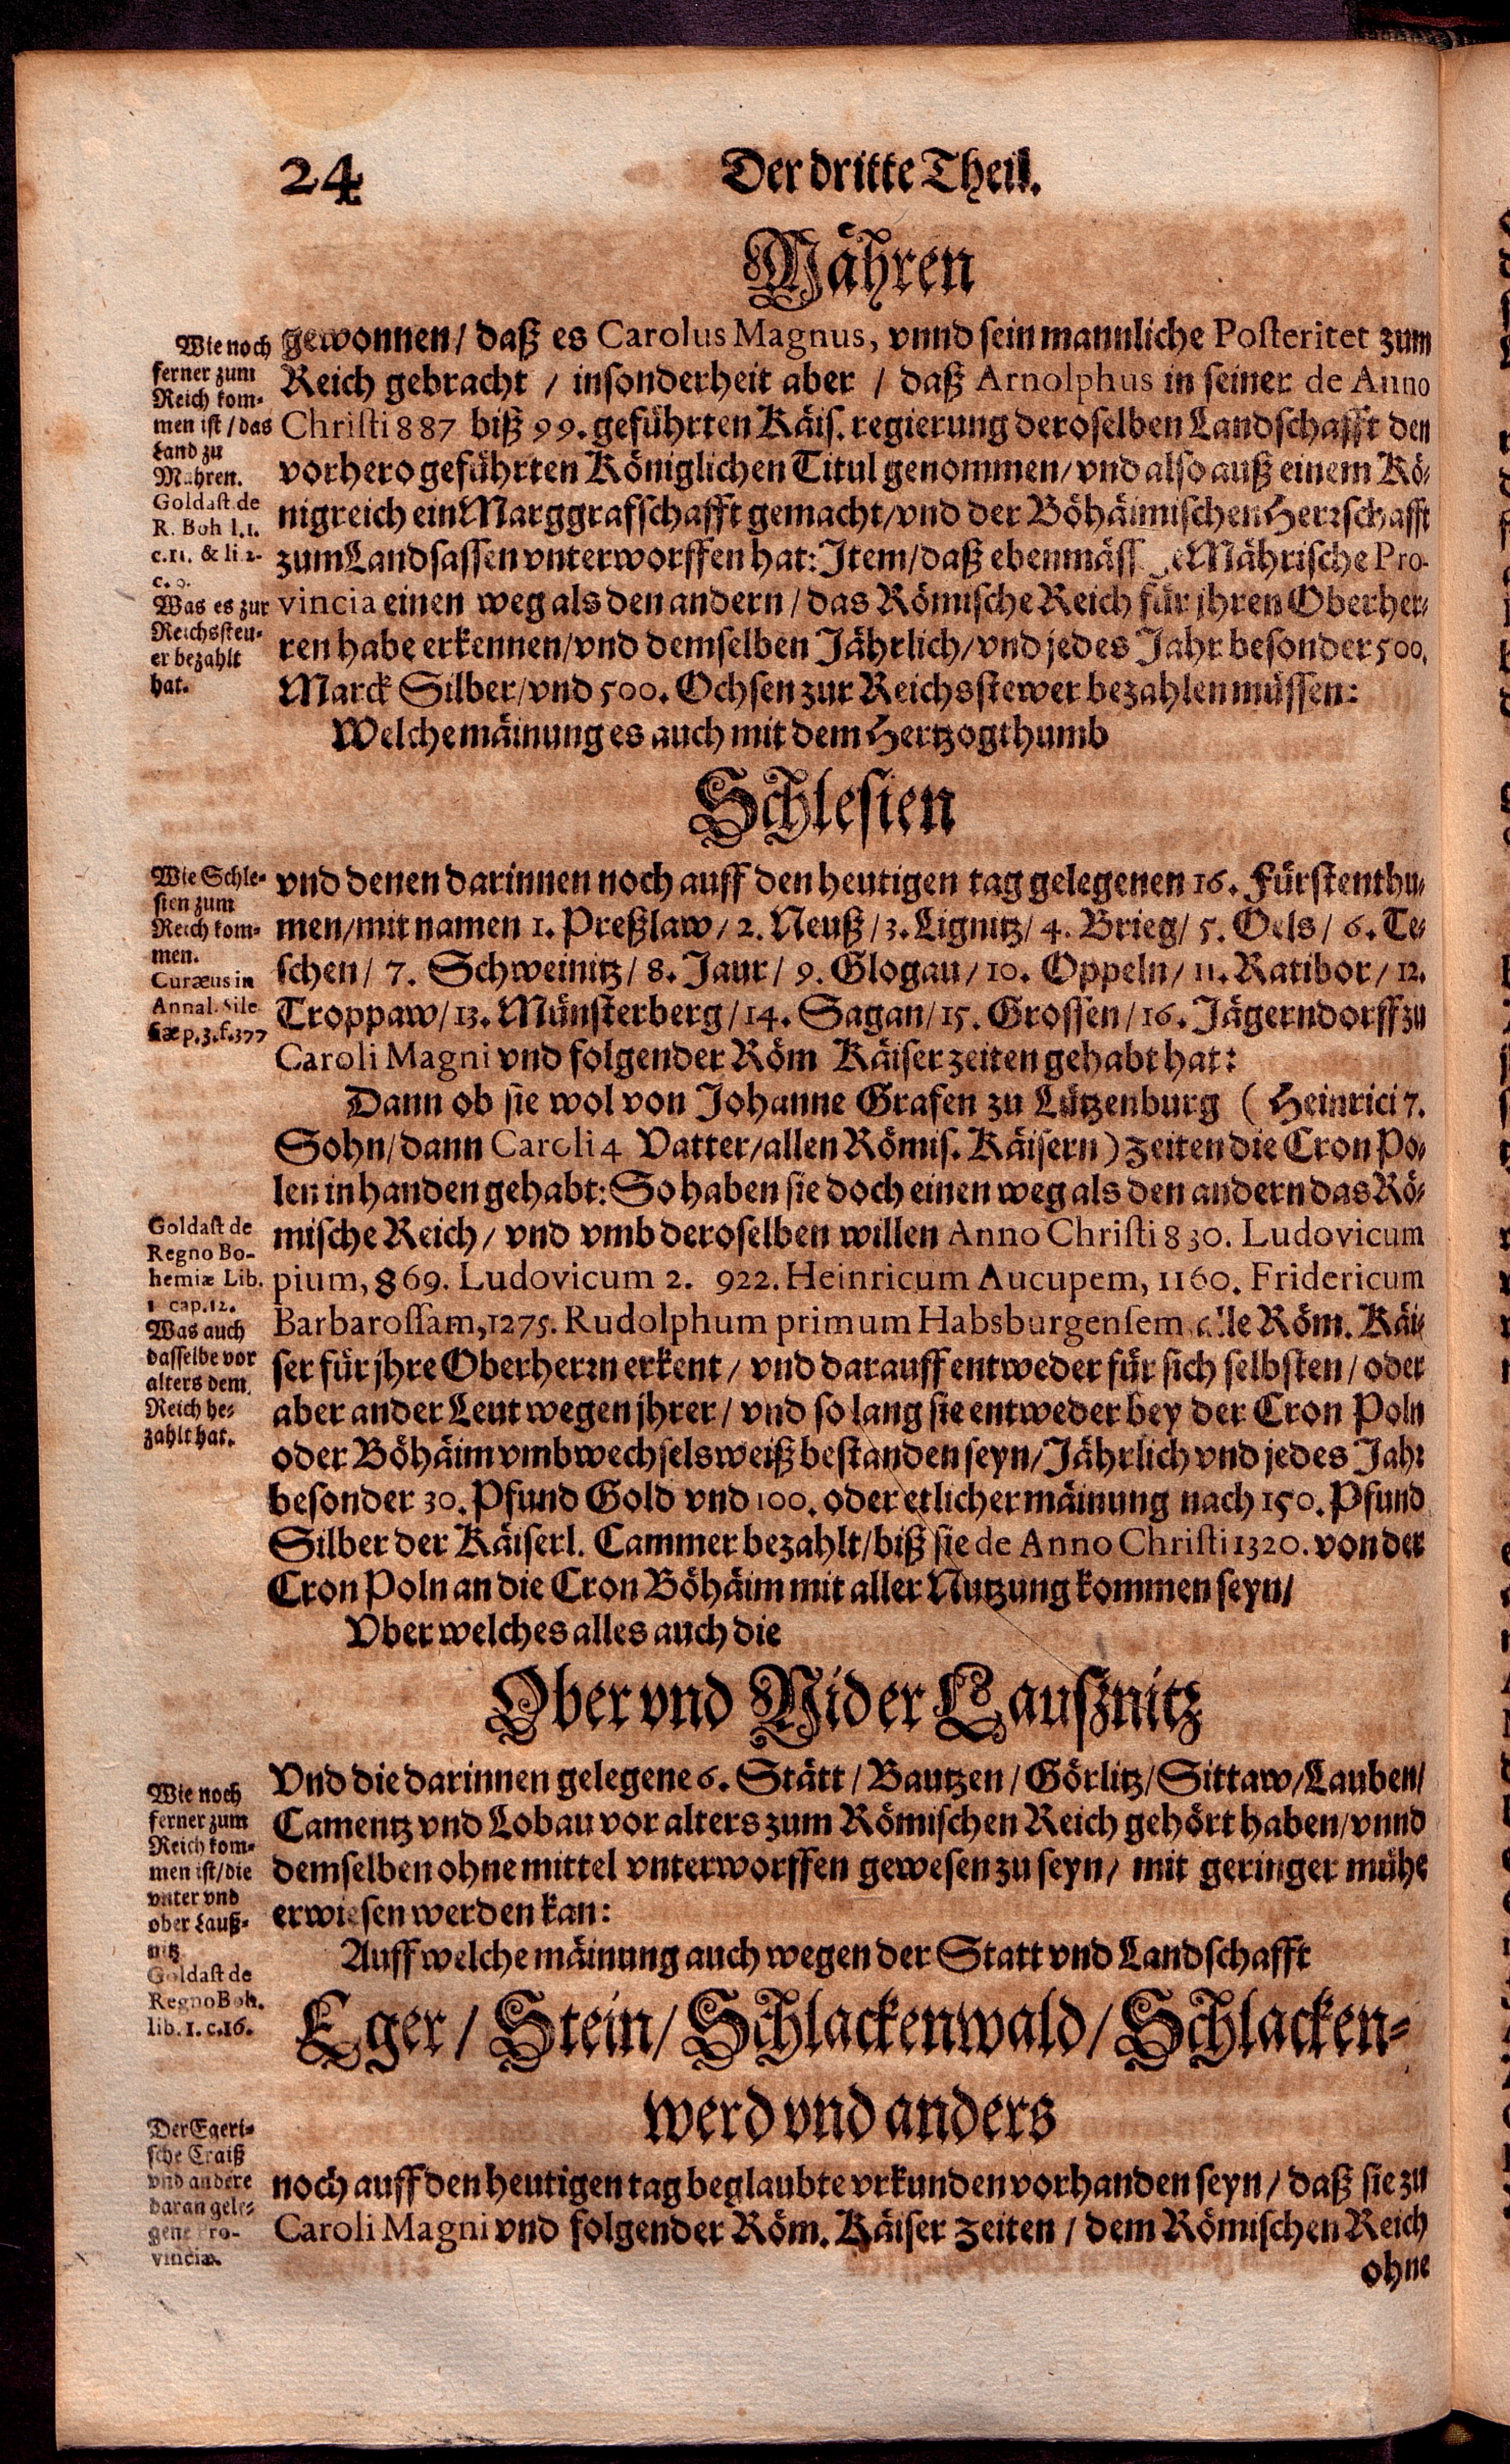 24 Der dritte Theil.
Mähren
gewonnen/ daß es Carolus Magnus, vnnd sein mannliche Posteritet zum
Reich gebracht / insonderheit aber / daß Arnolphus in seiner de Anno
Christi 887 biß 99. geführten Käis. regierung deroselben Landschafft den
vorhero geführten Königlichen Titul genommen/ vnd also auß einem Kö-
nigreich ein Marggrafschafft gemacht/vnd der Böhäimischen Herrschafft
zum Landsassen vnterworffen hat: Item/daß ebenmäss Mährische Pro-
vincia einen weg als den andern / das Römische Reich für jhren Oberher-
ren habe erkennen/vnd demselben Jährlich/vnd jedes Jahr besonder 500.
Marck Silber/vnd 500. Ochsen zur Reichsstewer bezahlen müssen:
Welche mäinung es auch mit dem Hertzogthumb
Wie noch
ferner zum
Reich kom-
men ist / das
Land zu
Mähren.
Goldast de
R. Boh l.1.
c.11. & li 2.
c. 9.
Was es zur
Reichssteu-
er bezahlt
hat.
Schlesien
vnd denen darinnen noch auff den heutigen tag gelegenen 16. Fürstenthu-
men/mit namen 1. Preßlaw / 2. Neuß / 3. Lignitz/ 4. Brieg/ 5. Oels / 6. Te-
schen/ 7. Schweinitz/ 8. Jaur/ 9. Glogau/ 10. Oppeln/ 11. Ratibor / 12.
Troppaw/13. Münsterberg /14. Sagan/15. Grossen /16. Jägerndorff zu
Caroli Magni vnd folgender Röm Käiser zeiten gehabt hat:
Dann ob sie wol von Johanne Grafen zu Lützenburg ( Heinrici 7.
Sohn/dann Caroli 4 Vatter/allen Römis. Käisern) zeiten die Cron Po-
len in handen gehabt: So haben sie doch einen weg als den andern das Rö-
mische Reich / vnd vmb deroselben willen Anno Christi 830. Ludovicum
pium, 869. Ludovicum 2. 922. Heinricum Aucupem, 1160. Fridericum
Barbarossam, 1275. Rudolphum primum Habsburgensem alle Röm. Käi-
ser für jhre Oberherrn erkent / vnd darauff entweder für sich selbsten / oder
aber ander Leut wegen jhrer / vnd so lang sie entweder bey der Cron Poln
oder Böhäim vmbwechselsweiß bestanden seyn/Jährlich vnd jedes Jahr
besonder 30. Pfund Gold vnd 100. oder etlicher mäinung nach 150. Pfund
Silber der Käiserl. Cammer bezahlt/biß sie de Anno Christi 1320. von der
Cron Poln an die Cron Böhäim mit aller Nutzung kommen seyn/
Vber welches alles auch die
Wie Schle-
sien zum
Reich kom-
men.
Curæus in
Annal. Sile
siæ p.3.f.377
Goldast de
Regno Bo-
hemiæ Lib.
1 cap.12.
Was auch
dasselbe vor
alters dem
Reich be-
zahlt hat.
Ober vnd Nider Laußnitz
Vnd die darinnen gelegene 6. Stätt / Bautzen / Görlitz/ Sittaw/Lauben/
Camentz vnd Lobau vor alters zum Römischen Reich gehört haben/vnnd
demselben ohne mittel vnterworffen gewesen zu seyn/ mit geringer mühe
erwiesen werden kan:
Auff welche mäinung auch wegen der Statt vnd Landschafft
Wie noch
ferner zum
Reich kom-
men ist/die
vnter vnd
ober Lauß-
nitz
Goldast de
Regno Boh.
lib. 1. c.16.
Eger / Stein/ Schlackenwald/ Schlacken-
werd vnd anders
noch auff den heutigen tag beglaubte vrkunden vorhanden seyn / daß sie zu
Caroli Magni vnd folgender Röm. Käiser zeiten / dem Römischen Reich
Der Egeri-
sche Craiß
vnd andere
daran gele-
gene Pro-
vinciæ.
ohne